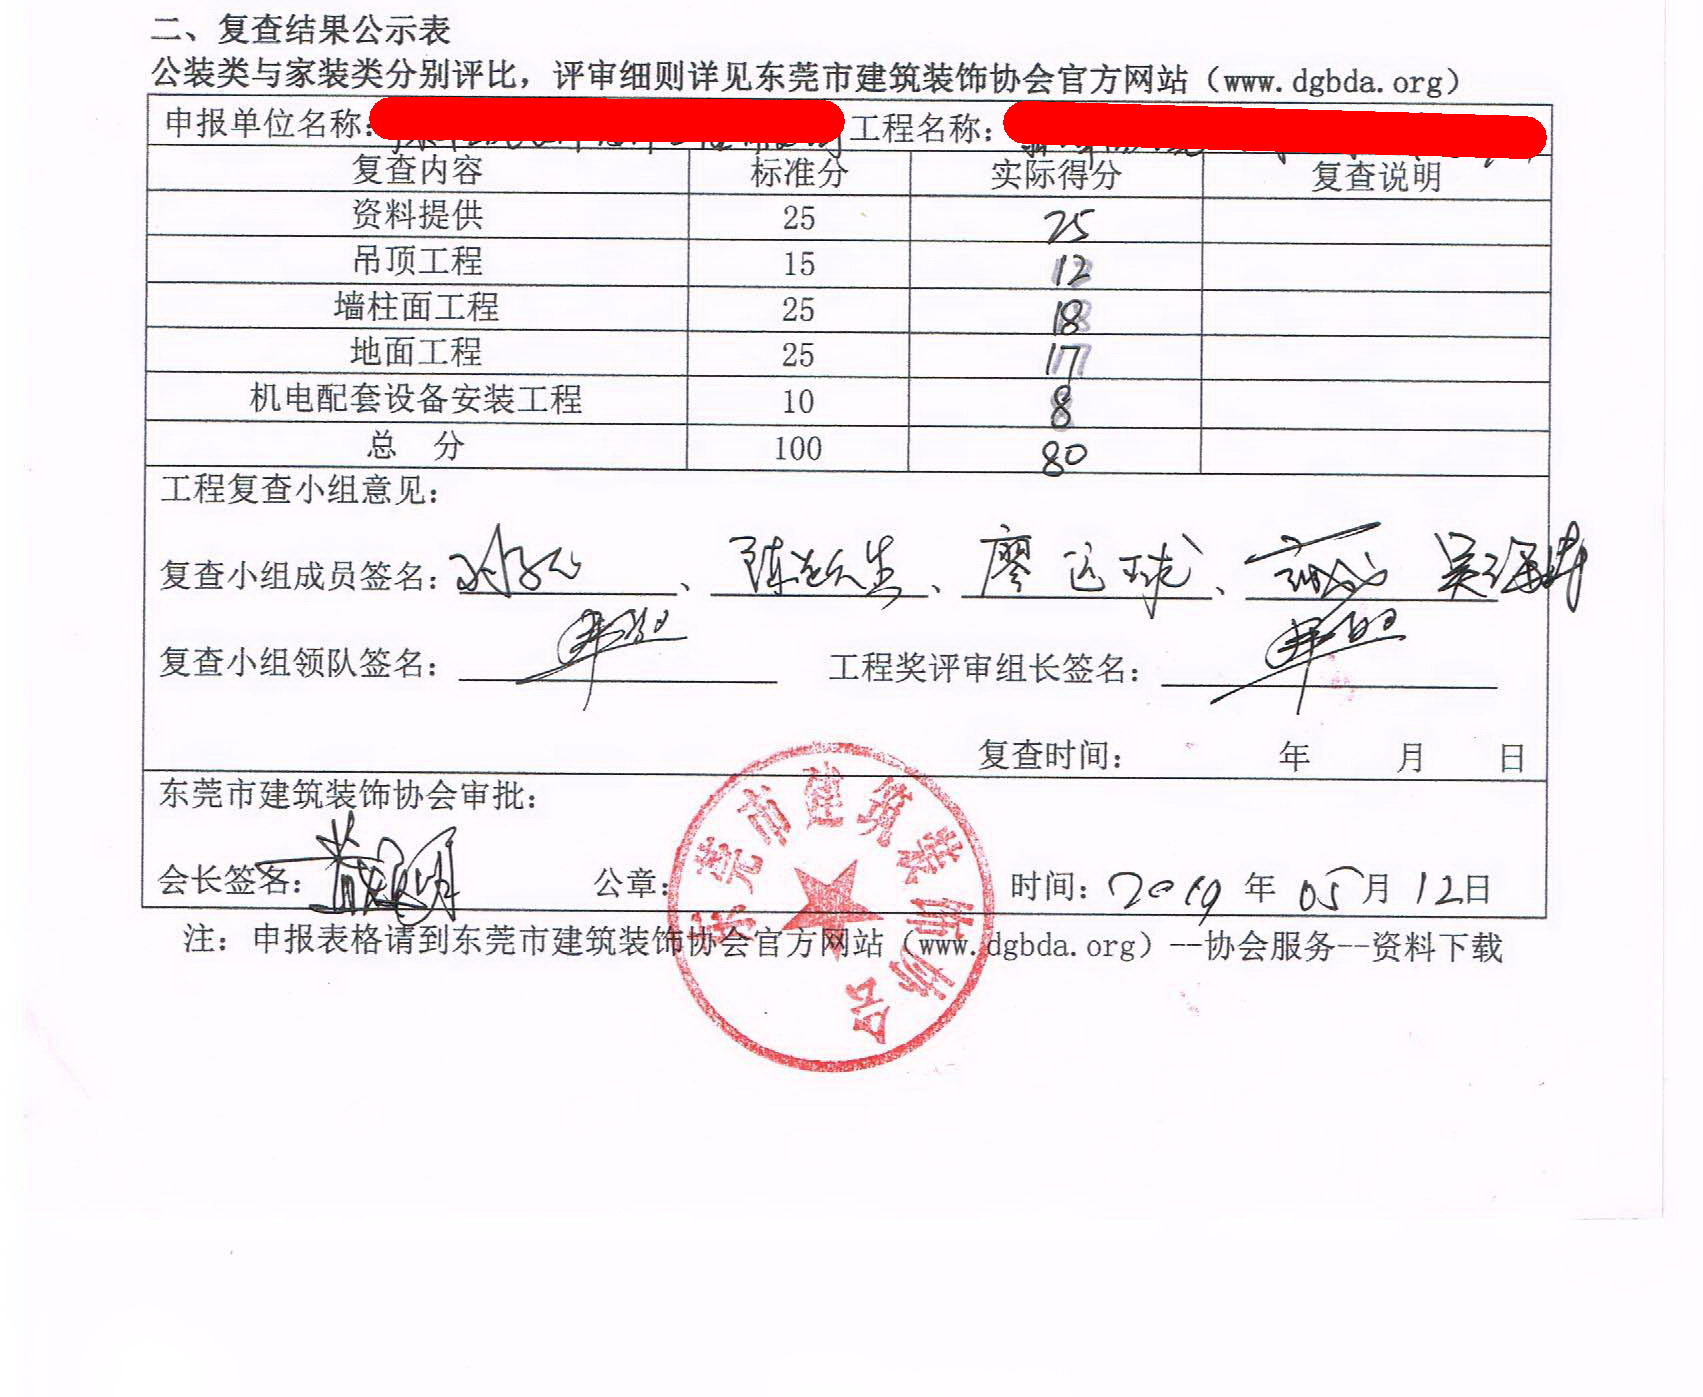 二、复查结果公示表
公装类与家装类分别评比，评审细则详见东莞市建筑装饰协会官方网站（www.dgbda.org）
申报单位名称： 工程名称：
复查内容 标准分 实际得分 复查说明
资料提供 25 25
吊顶工程 15 12
墙柱面工程 25 18
地面工程 25 17
机电配套设备安装工程 10 8
总 分 100 80
工程复查小组意见：
复查小组成员签名： 、 、廖远球、
复查小组领队签名： 工程奖评审组长签名：
复查时间： 年 月 日
东莞市建筑装饰协会审批：
会长签名： 公章： 时间：2019年05月12日
东莞市建筑装饰协会
注：申报表格请到东莞市建筑装饰协会官方网站（www.dgbda.org）--协会服务--资料下载